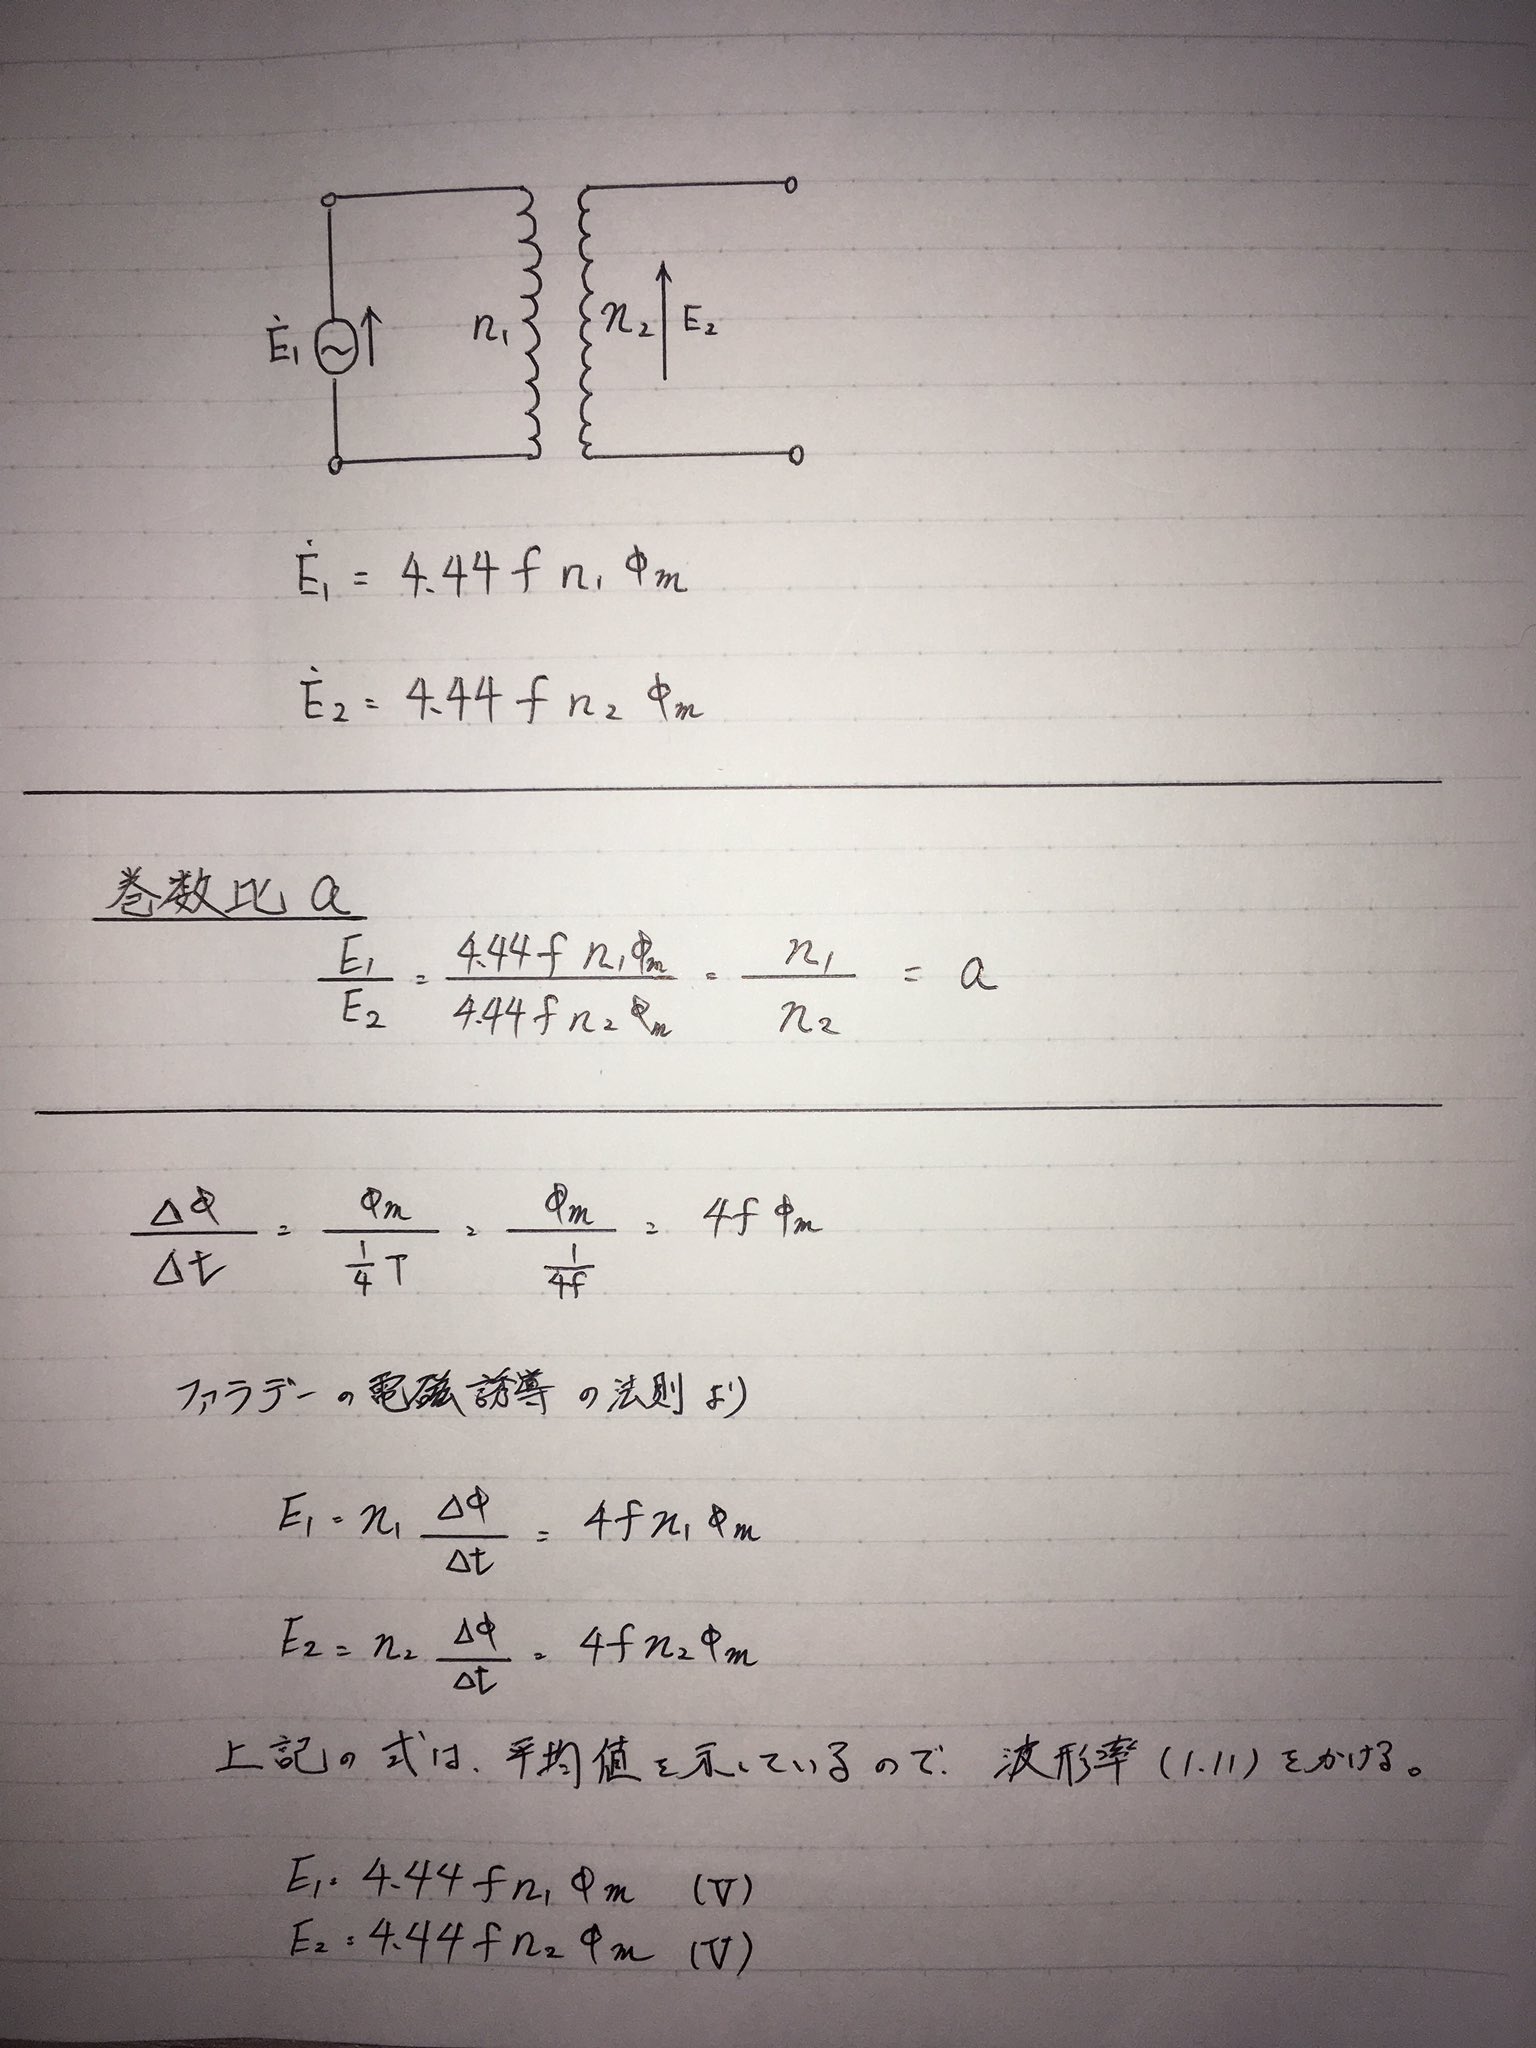 Ė₁
n₁
n₂
E₂
Ė₁ = 4.44 f n₁ Φm
Ė₂ = 4.44 f n₂ Φm
巻数比 a
E₁/E₂ = 4.44 f n₁ Φm / 4.44 f n₂ Φm = n₁/n₂ = a
ΔΦ/Δt = Φm / (1/4)T = Φm / (1/4f) = 4f Φm
ファラデーの電磁誘導の法則より
E₁ = n₁ ΔΦ/Δt = 4f n₁ Φm
E₂ = n₂ ΔΦ/Δt = 4f n₂ Φm
上記の式は、平均値を示しているので、波形率(1.11)をかける。
E₁ = 4.44 f n₁ Φm (V)
E₂ = 4.44 f n₂ Φm (V)